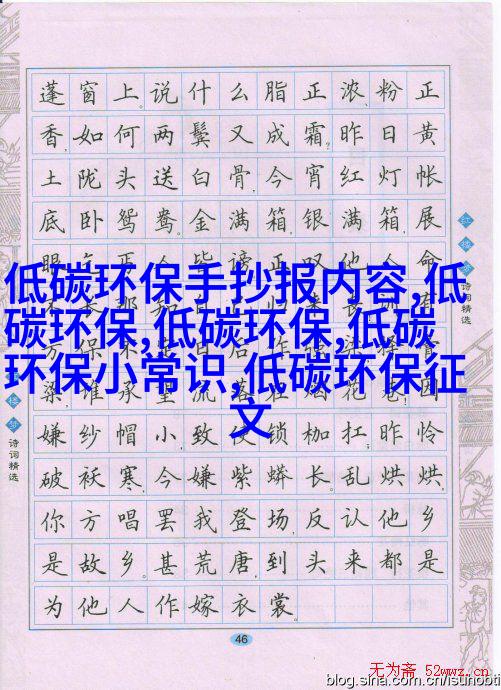 蓬窗上。说什么脂正浓、粉正
香,如何两鬓又成霜?昨日黄
土陇头送白骨,今宵红灯帐
底卧鸳鸯。金满箱,银满箱,展
人皆谤。正叹他人命
低碳环保手抄报内容,低
碳环保,低碳环保,低碳
环保小常识,低碳环保征
文
嫌纱帽小,致使锁枷扛;昨怜
破袄寒,今嫌紫蟒长。乱烘烘,
你方唱罢我登场,反认他乡
是故乡。甚荒唐,到头来都是
为他人作嫁衣裳。
红楼梦诗词精选
楼梦诗词精选
46
无为斋 52wwz.cn
blog.sina.com.cn/isunobti